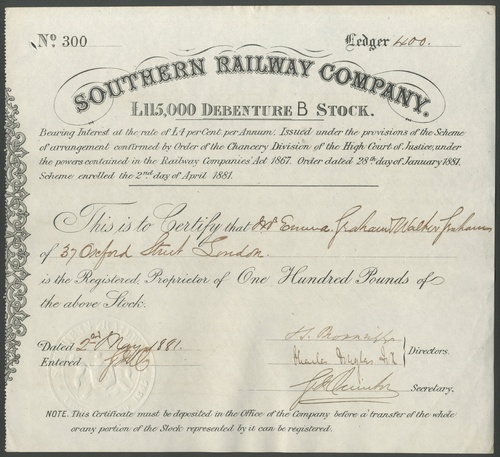 No. 300
Ledger 400.
SOUTHERN RAILWAY COMPANY.
£115,000 DEBENTURE B STOCK.
Bearing Interest at the rate of £4 per Cent. per Annum. Issued under the provisions of the Scheme
of arrangement confirmed by Order of the Chancery Division of the High Court of Justice, under
the powers contained in the Railway Companies' Act 1867. Order dated 28th day of January 1881.
Scheme enrolled the 2nd day of April 1881.
This is to Certify that Emma Graham Walter Graham
of 37 Oxford Street London
is the Registered Proprietor of One Hundred Pounds of
the above Stock.
Dated 2nd May 1881.
Entered
Charles
Directors.
Secretary.
NOTE. This Certificate must be deposited in the Office of the Company before a transfer of the whole
or any portion of the Stock represented by it can be registered.